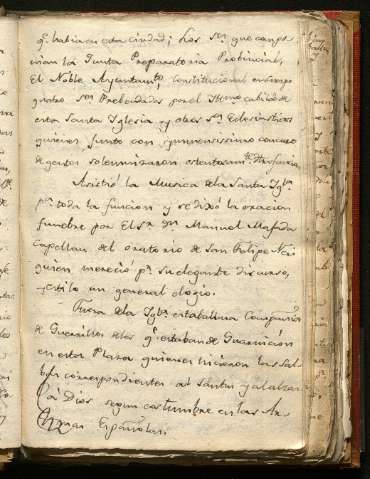 qe. habia en esta ciudad; Los Sres. que compo-
nian la Junta Preparatoria Provincial,
El Noble Ayuntamto. Constitucional
quatro Sres Prebendados por el Illmo. cabildo de
esta Santa Iglesia y otros Ss. Eclesiasticos
quienes junto con ynmensissimo concurso
de gentes solemnizaron
Asistió la Musica de la Santa Igla.
pr. toda la funcion y se dixó la oracion
funebre por El Sr. Dn. Manuel
Capellan del oratorio de San Felipe Neri
quien mereció pr. su elegante discurso,
y estilo un general elogio.
Fuera de la Igla. estaban la Compañias
de Guerrillas de los qe. estaban de Guarnicion
en esta Plaza quienes hicieron las Sal-
bas correspondientes al Santus y al alzar
á Dios segun costumbre en las Ar-
mas Españolas.